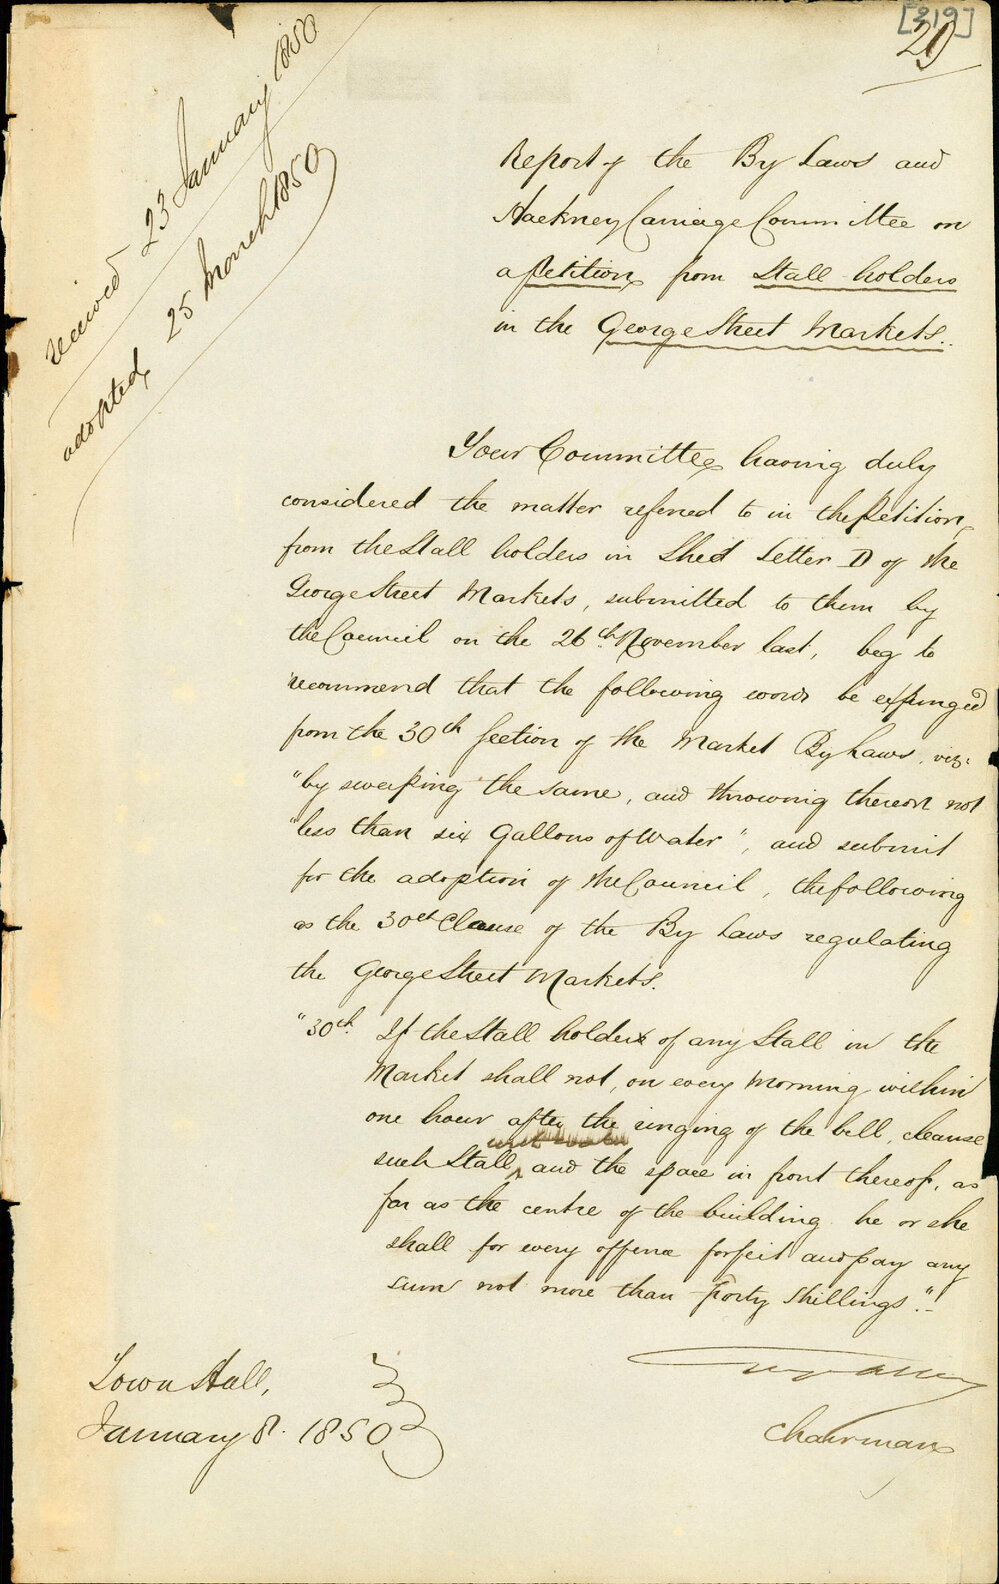 [319]
29
received 23 January 1850
adopted 25 March 1850
Report of the By Laws and
Hackney Carriage Committee on
a Petition from Stall holders
in the George Street Markets.
Your Committee having duly
considered the matter referred to in the Petition
from the Stall holders in Shed Letter D of the
George Street Markets, submitted to them by
the Council on the 26th November last, beg to
recommend that the following words be expunged
from the 30th Section of the Market By Laws, viz:
"by sweeping the same, and throwing thereon not
"less than six Gallons of Water", and submit
for the adoption of the Council, the following
as the 30th Clause of the By Laws regulating
the George Street Markets.
"30th. If the Stall holder of any Stall in the
Market shall not, on every Morning within
one hour after the ringing of the bell, cleanse
such Stall, and the space in front thereof, as
far as the centre of the building he or she
shall for every offence forfeit and pay any
sum not more than Forty Shillings."
Town Hall,
January 8. 1850
Chairman